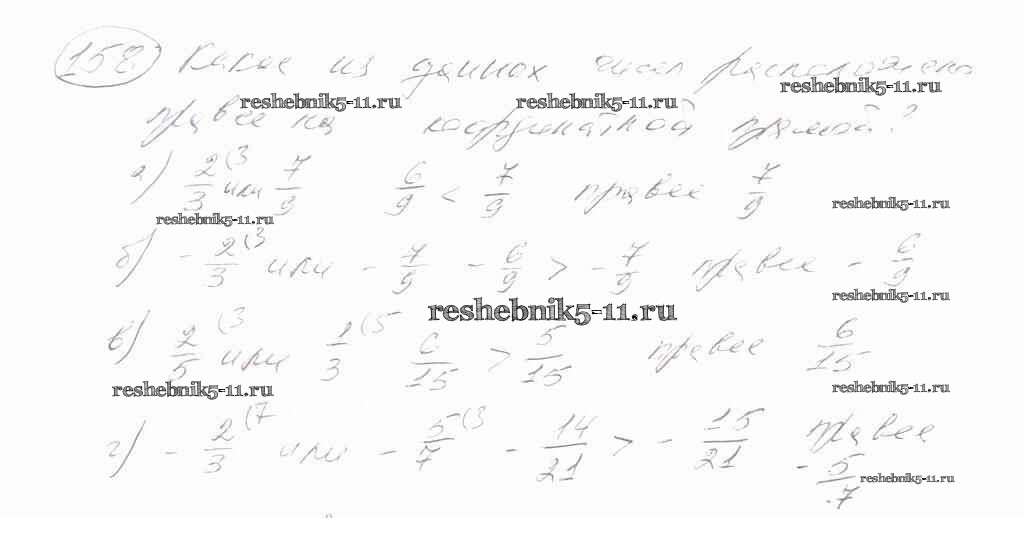 158 Какое из данных чисел расположено
reshebnik5-11.ru reshebnik5-11.ru reshebnik5-11.ru
правее на координатной прямой?
а) 2/3 (3 или 7/9 6/9 < 7/9 правее 7/9
reshebnik5-11.ru reshebnik5-11.ru
б) - 2/3 (3 или - 7/9 - 6/9 > - 7/9 правее - 6/9
reshebnik5-11.ru reshebnik5-11.ru
в) 2/5 (3 или 1/3 (5 6/15 > 5/15 правее 6/15
reshebnik5-11.ru reshebnik5-11.ru
г) - 2/3 (7 или - 5/7 (3 - 14/21 > - 15/21 правее
- 5/7 reshebnik5-11.ru